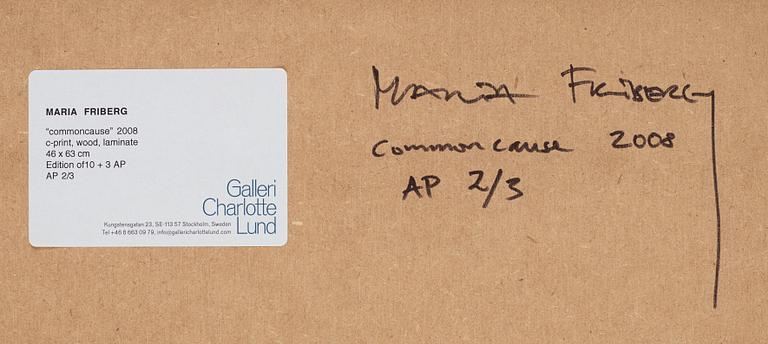 MARIA FRIBERG
"commoncause" 2008
c-print, wood, laminate
46 x 63 cm
Edition of10 + 3 AP
AP 2/3
Galleri
Charlotte
Lund
Kungstensgatan 23, SE-113 57 Stockholm, Sweden
Tel +46 8 663 09 79, info@gallericharlottelund.com
MARIA FRIBERG
Commoncause 2008
AP 2/3